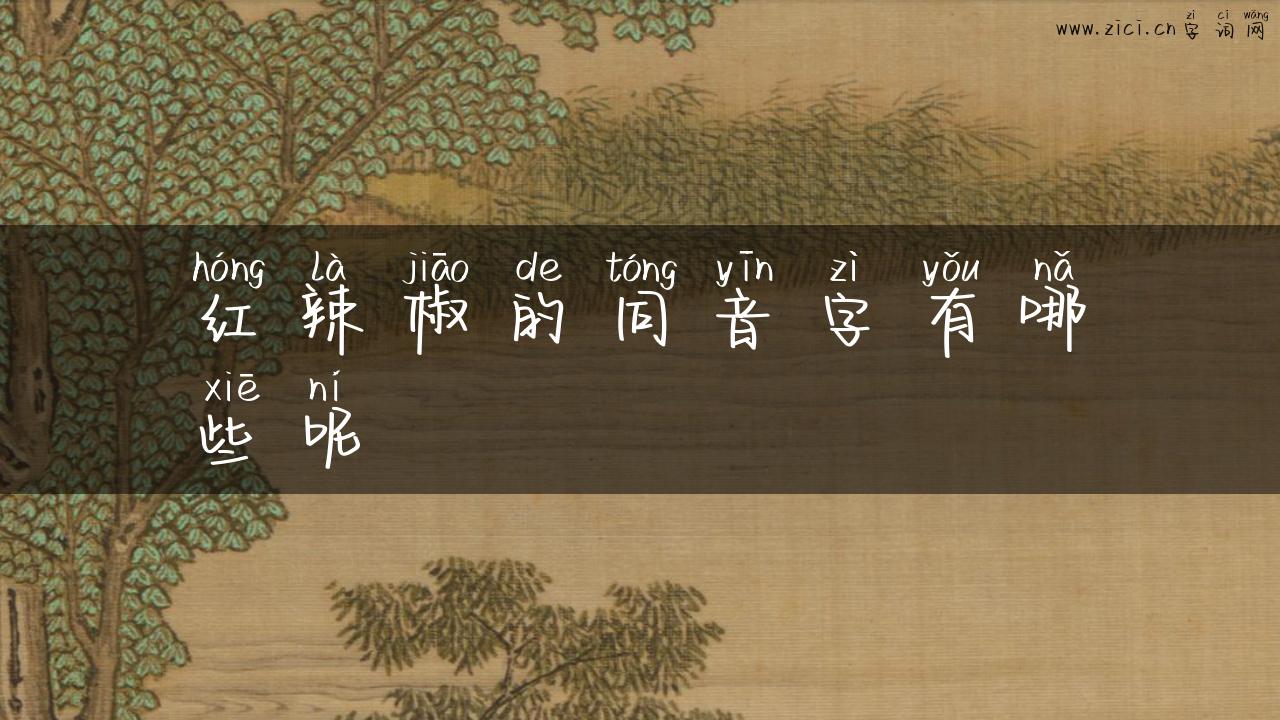 zì cí wǎng
www.zici.cn 字词网
hóng là jiāo de tóng yīn zì yǒu nǎ
红辣椒的同音字有哪
xiē ní
些呢